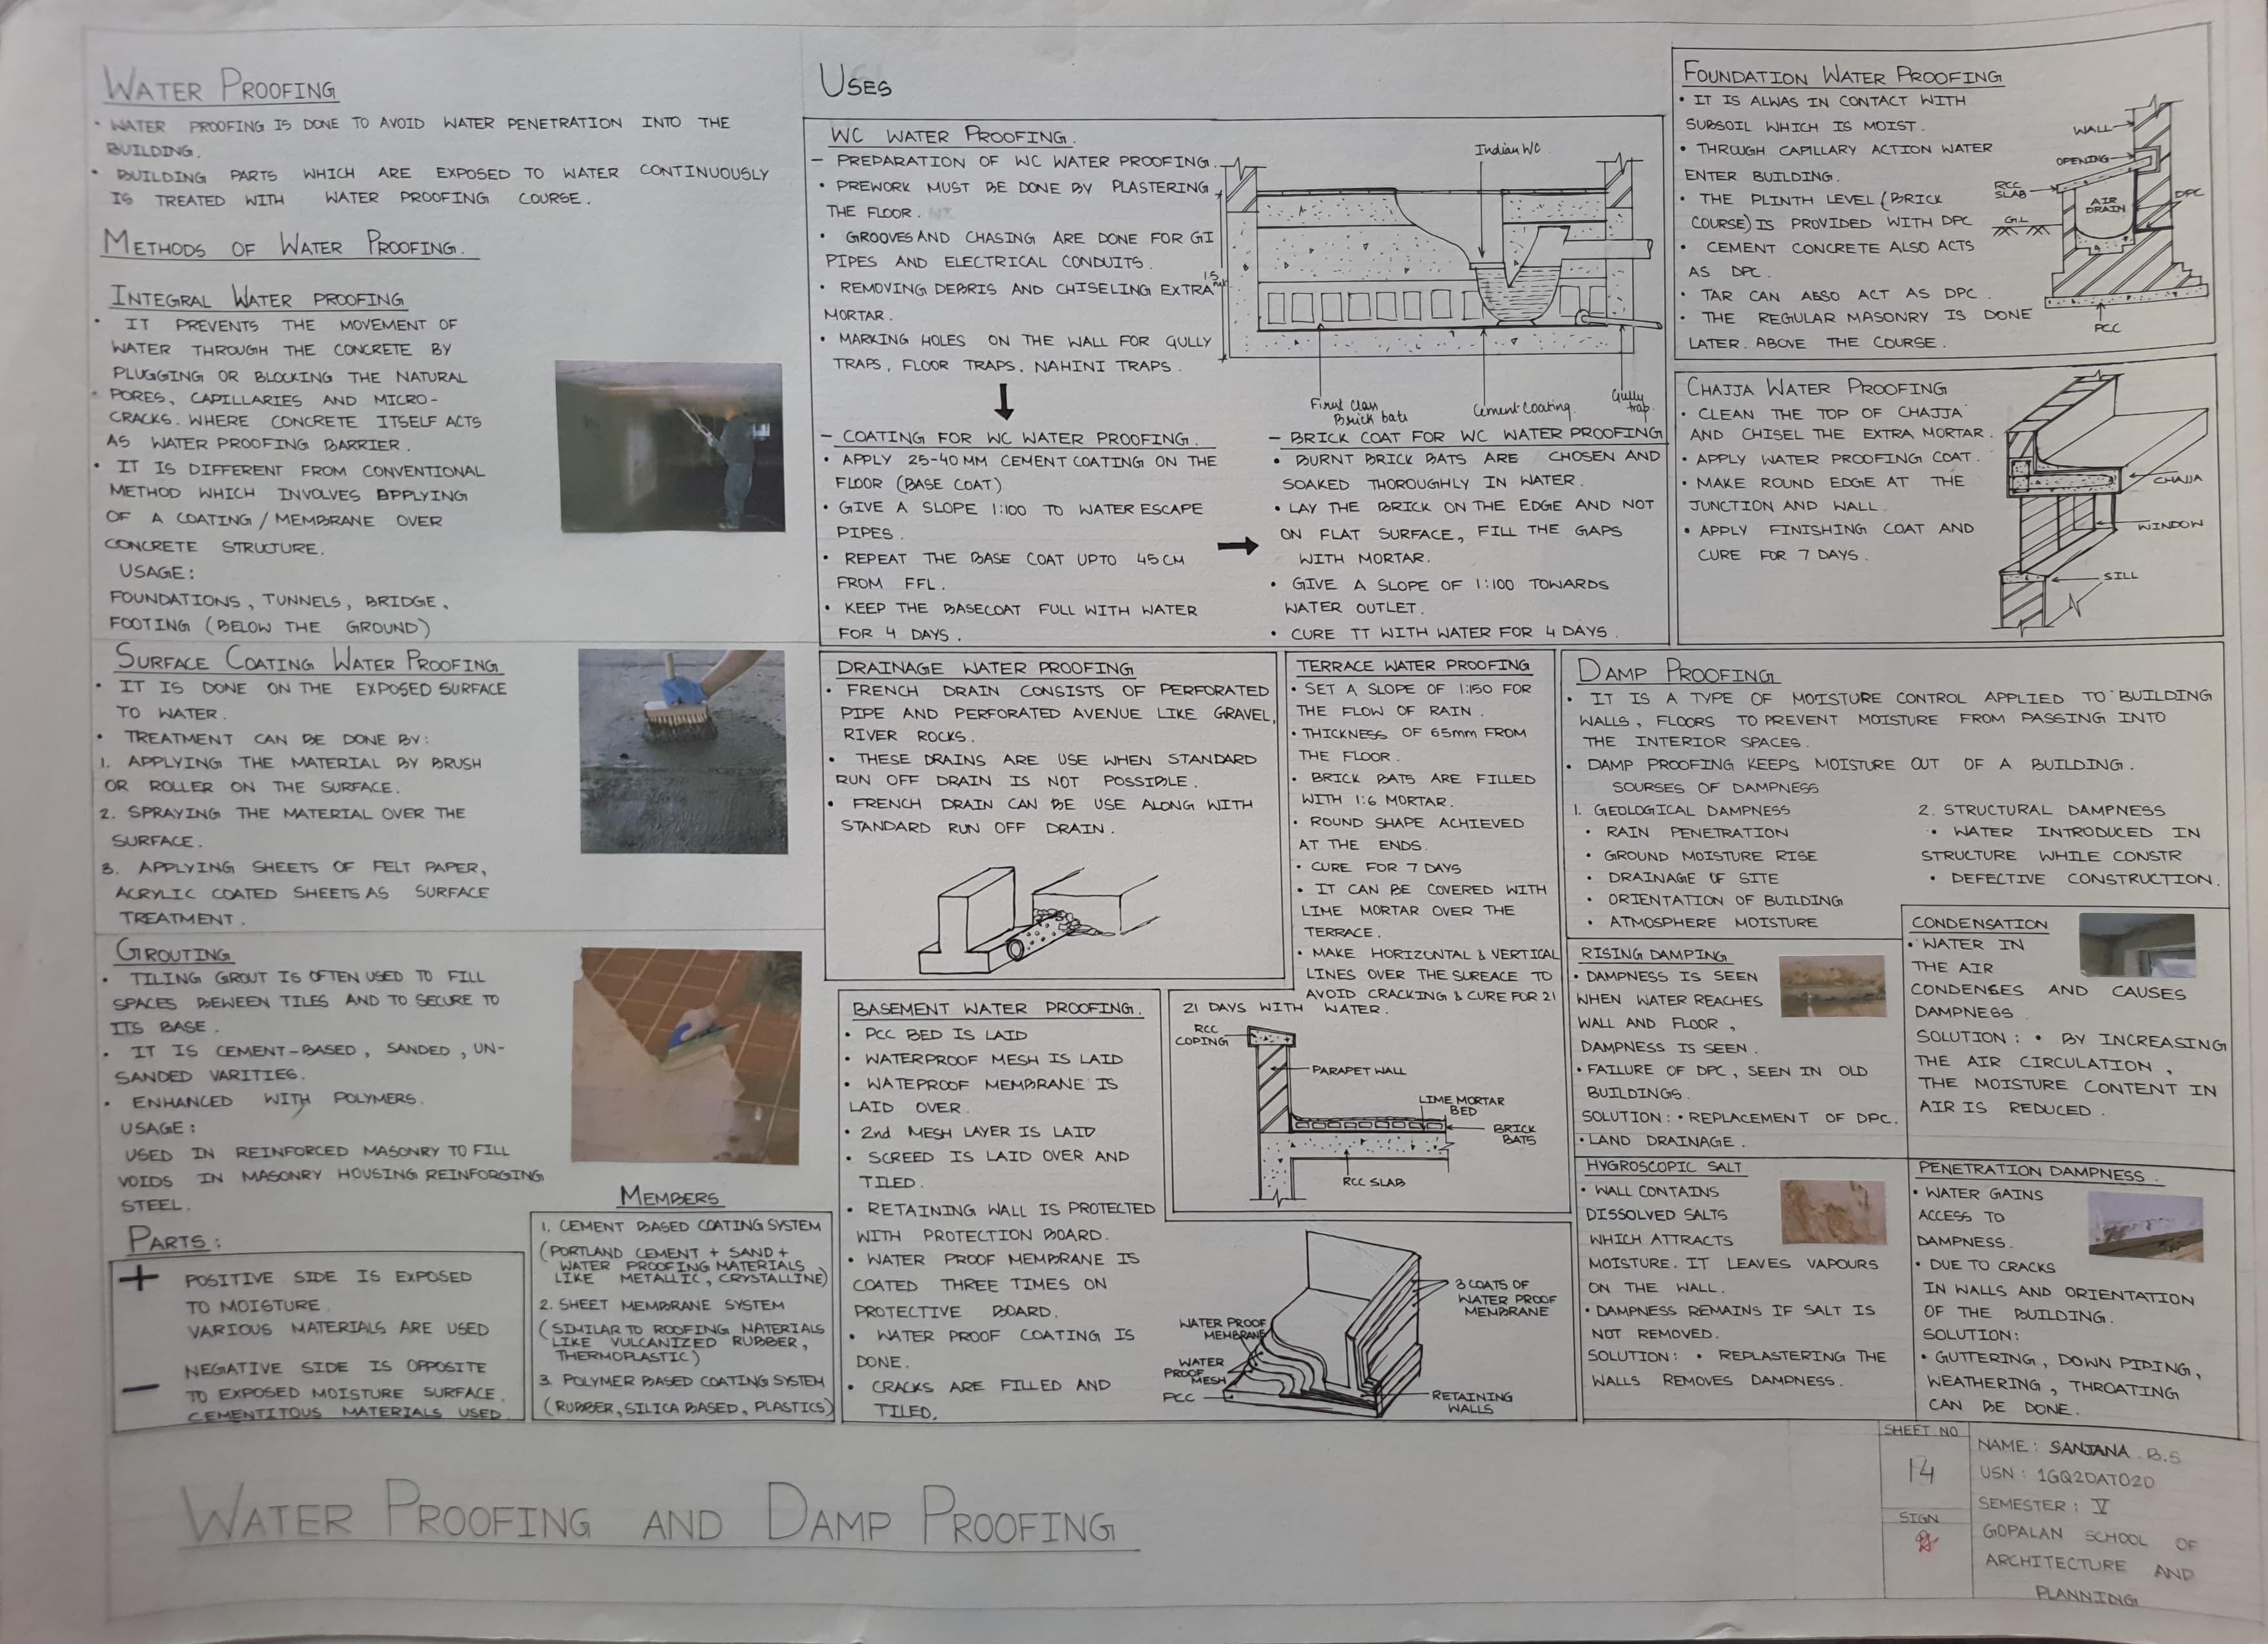 WATER PROOFING
• WATER PROOFING IS DONE TO AVOID WATER PENETRATION INTO THE
BUILDING.
• BUILDING PARTS WHICH ARE EXPOSED TO WATER CONTINUOUSLY
IS TREATED WITH WATER PROOFING COURSE.
METHODS OF WATER PROOFING.
INTEGRAL WATER PROOFING
• IT PREVENTS THE MOVEMENT OF
WATER THROUGH THE CONCRETE BY
PLUGGING OR BLOCKING THE NATURAL
• PORES, CAPILLARIES AND MICRO-
CRACKS. WHERE CONCRETE ITSELF ACTS
AS WATER PROOFING BARRIER.
• IT IS DIFFERENT FROM CONVENTIONAL
METHOD WHICH INVOLVES APPLYING
OF A COATING / MEMBRANE OVER
CONCRETE STRUCTURE.
USAGE:
FOUNDATIONS, TUNNELS, BRIDGE,
FOOTING (BELOW THE GROUND)
SURFACE COATING WATER PROOFING
• IT IS DONE ON THE EXPOSED SURFACE
TO WATER.
• TREATMENT CAN BE DONE BY:
1. APPLYING THE MATERIAL BY BRUSH
OR ROLLER ON THE SURFACE.
2. SPRAYING THE MATERIAL OVER THE
SURFACE.
3. APPLYING SHEETS OF FELT PAPER,
ACRYLIC COATED SHEETS AS SURFACE
TREATMENT.
GROUTING
• TILING GROUT IS OFTEN USED TO FILL
SPACES BEWEEN TILES AND TO SECURE TO
ITS BASE.
• IT IS CEMENT-BASED, SANDED, UN-
SANDED VARITIES.
• ENHANCED WITH POLYMERS.
USAGE:
USED IN REINFORCED MASONRY TO FILL
VOIDS IN MASONRY HOUSING REINFORGING
STEEL.
PARTS:
+ POSITIVE SIDE IS EXPOSED
TO MOISTURE.
VARIOUS MATERIALS ARE USED
NEGATIVE SIDE IS OPPOSITE
— TO EXPOSED MOISTURE SURFACE.
CEMENTITOUS MATERIALS USED.
MEMBERS
1. CEMENT BASED COATING SYSTEM
(PORTLAND CEMENT + SAND +
WATER PROOFING MATERIALS
LIKE METALLIC, CRYSTALLINE)
2. SHEET MEMBRANE SYSTEM
(SIMILAR TO ROOFING MATERIALS
LIKE VULCANIZED RUBBER,
THERMOPLASTIC)
3. POLYMER BASED COATING SYSTEM
(RUBBER, SILICA BASED, PLASTICS)
USES
WC WATER PROOFING.
— PREPARATION OF WC WATER PROOFING.
• PREWORK MUST BE DONE BY PLASTERING
THE FLOOR.
• GROOVES AND CHASING ARE DONE FOR GI
PIPES AND ELECTRICAL CONDUITS.
• REMOVING DEBRIS AND CHISELING EXTRA
MORTAR.
• MARKING HOLES ON THE WALL FOR GULLY
TRAPS, FLOOR TRAPS, NAHINI TRAPS.
Indian WC
First Class
Brick bats
Cement Coating.
Gully
trap.
— COATING FOR WC WATER PROOFING.
• APPLY 25-40 MM CEMENT COATING ON THE
FLOOR (BASE COAT)
• GIVE A SLOPE 1:100 TO WATER ESCAPE
PIPES.
• REPEAT THE BASE COAT UPTO 45 CM
FROM FFL.
• KEEP THE BASECOAT FULL WITH WATER
FOR 4 DAYS.
— BRICK COAT FOR WC WATER PROOFING
• BURNT BRICK BATS ARE CHOSEN AND
SOAKED THOROUGHLY IN WATER.
• LAY THE BRICK ON THE EDGE AND NOT
ON FLAT SURFACE, FILL THE GAPS
WITH MORTAR.
• GIVE A SLOPE OF 1:100 TOWARDS
WATER OUTLET.
• CURE TT WITH WATER FOR 4 DAYS.
FOUNDATION WATER PROOFING
• IT IS ALWAS IN CONTACT WITH
SUBSOIL WHICH IS MOIST.
• THROUGH CAPILLARY ACTION WATER
ENTER BUILDING.
• THE PLINTH LEVEL (BRICK
COURSE) IS PROVIDED WITH DPC
• CEMENT CONCRETE ALSO ACTS
AS DPC.
• TAR CAN ABSO ACT AS DPC.
• THE REGULAR MASONRY IS DONE
LATER. ABOVE THE COURSE.
WALL
OPENING
RCC
SLAB
AIR
DRAIN
DPC
G.L
PCC
CHAJJA WATER PROOFING
• CLEAN THE TOP OF CHAJJA
AND CHISEL THE EXTRA MORTAR.
• APPLY WATER PROOFING COAT.
• MAKE ROUND EDGE AT THE
JUNCTION AND WALL.
• APPLY FINISHING COAT AND
CURE FOR 7 DAYS.
CHAJJA
WINDOW
SILL
DRAINAGE WATER PROOFING
• FRENCH DRAIN CONSISTS OF PERFORATED
PIPE AND PERFORATED AVENUE LIKE GRAVEL,
RIVER ROCKS.
• THESE DRAINS ARE USE WHEN STANDARD
RUN OFF DRAIN IS NOT POSSIBLE.
• FRENCH DRAIN CAN BE USE ALONG WITH
STANDARD RUN OFF DRAIN.
TERRACE WATER PROOFING
• SET A SLOPE OF 1:150 FOR
THE FLOW OF RAIN.
• THICKNESS OF 65mm FROM
THE FLOOR.
• BRICK BATS ARE FILLED
WITH 1:6 MORTAR.
• ROUND SHAPE ACHIEVED
AT THE ENDS.
• CURE FOR 7 DAYS
• IT CAN BE COVERED WITH
LIME MORTAR OVER THE
TERRACE.
• MAKE HORIZONTAL & VERTICAL
LINES OVER THE SUREACE TO
AVOID CRACKING & CURE FOR 21
21 DAYS WITH WATER.
RCC
COPING
PARAPET WALL
LIME MORTAR
BED
BRICK
BATS
RCC SLAB
BASEMENT WATER PROOFING.
• PCC BED IS LAID
• WATERPROOF MESH IS LAID
• WATEPROOF MEMBRANE IS
LAID OVER.
• 2nd MESH LAYER IS LAID
• SCREED IS LAID OVER AND
TILED.
• RETAINING WALL IS PROTECTED
WITH PROTECTION BOARD.
• WATER PROOF MEMBRANE IS
COATED THREE TIMES ON
PROTECTIVE BOARD.
• WATER PROOF COATING IS
DONE.
• CRACKS ARE FILLED AND
TILED.
3 COATS OF
WATER PROOF
MEMBRANE
WATER PROOF
MEMBRANE
WATER
PROOF
MESH
PCC
RETAINING
WALLS
DAMP PROOFING
• IT IS A TYPE OF MOISTURE CONTROL APPLIED TO BUILDING
WALLS, FLOORS TO PREVENT MOISTURE FROM PASSING INTO
THE INTERIOR SPACES.
• DAMP PROOFING KEEPS MOISTURE OUT OF A BUILDING.
SOURSES OF DAMPNESS
1. GEOLOGICAL DAMPNESS
• RAIN PENETRATION
• GROUND MOISTURE RISE
• DRAINAGE OF SITE
• ORIENTATION OF BUILDING
• ATMOSPHERE MOISTURE
2. STRUCTURAL DAMPNESS
• WATER INTRODUCED IN
STRUCTURE WHILE CONSTR
• DEFECTIVE CONSTRUCTION.
RISING DAMPING
• DAMPNESS IS SEEN
WHEN WATER REACHES
WALL AND FLOOR,
DAMPNESS IS SEEN.
• FAILURE OF DPC, SEEN IN OLD
BUILDINGS.
SOLUTION: • REPLACEMENT OF DPC.
• LAND DRAINAGE.
CONDENSATION
• WATER IN
THE AIR
CONDENSES AND CAUSES
DAMPNESS
SOLUTION: • BY INCREASING
THE AIR CIRCULATION,
THE MOISTURE CONTENT IN
AIR IS REDUCED.
HYGROSCOPIC SALT
• WALL CONTAINS
DISSOLVED SALTS
WHICH ATTRACTS
MOISTURE. IT LEAVES VAPOURS
ON THE WALL.
• DAMPNESS REMAINS IF SALT IS
NOT REMOVED.
SOLUTION: • REPLASTERING THE
WALLS REMOVES DAMPNESS.
PENETRATION DAMPNESS.
• WATER GAINS
ACCESS TO
DAMPNESS.
• DUE TO CRACKS
IN WALLS AND ORIENTATION
OF THE BUILDING.
SOLUTION:
• GUTTERING, DOWN PIPING,
WEATHERING, THROATING
CAN BE DONE.
WATER PROOFING AND DAMP PROOFING
SHEET NO
14
SIGN
NAME: SANJANA. B.S
USN: 1GQ20AT020
SEMESTER: V
GOPALAN SCHOOL OF
ARCHITECTURE AND
PLANNING